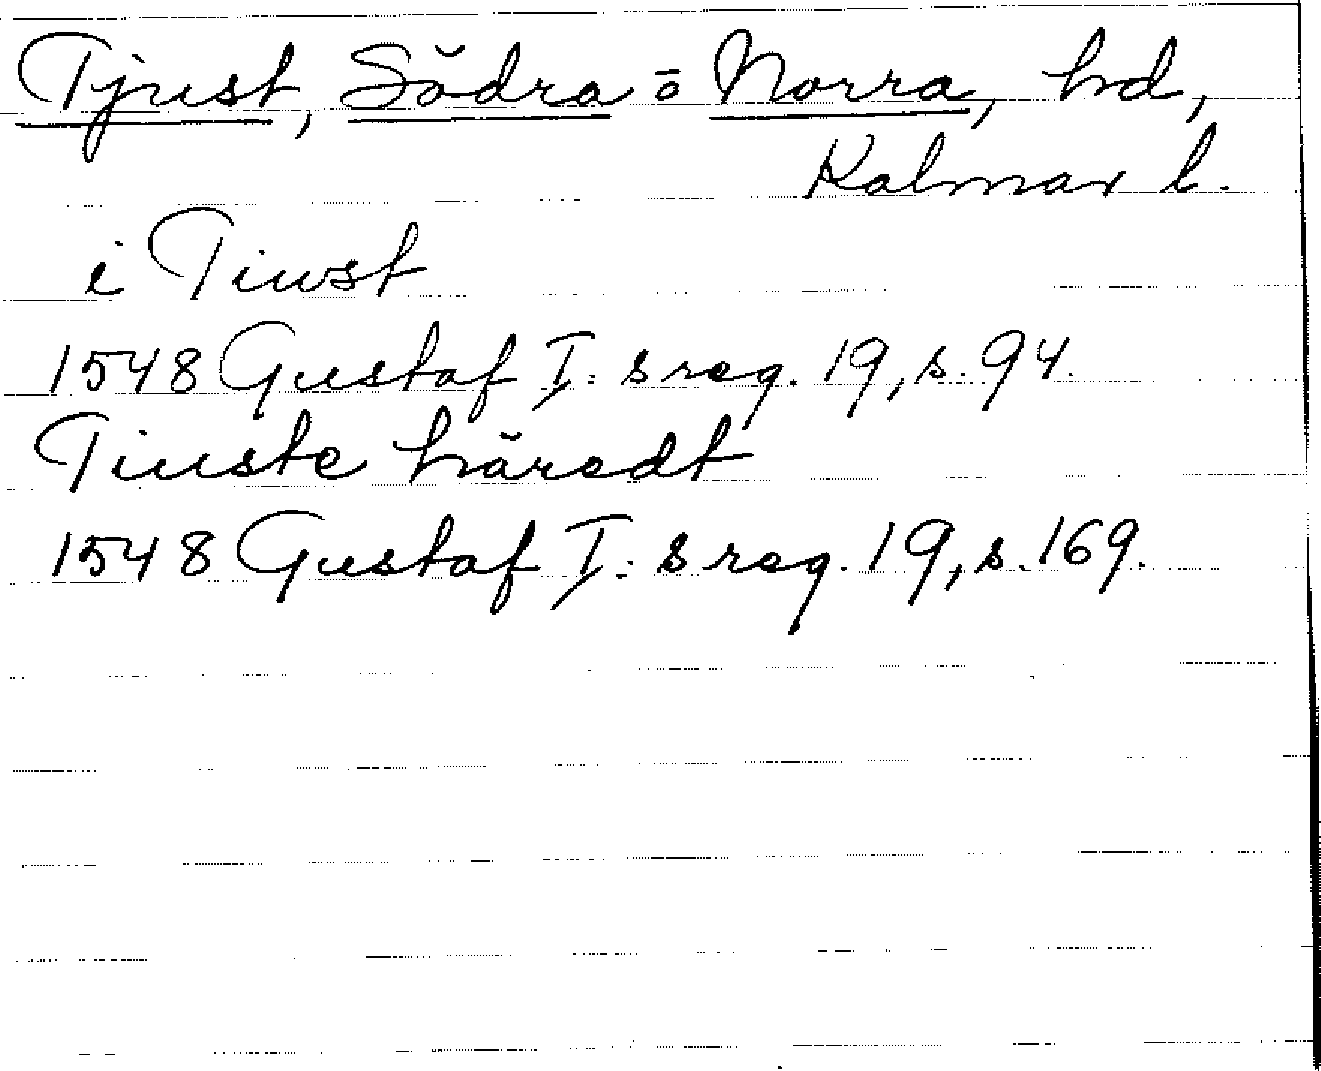 Tjust, Södra o Norra, hd,
Kalmar l.
i Tiwst
1548 Gustaf I:s reg. 19, s. 94.
Tiuste häredt
1548 Gustaf I:s reg. 19, s. 169.